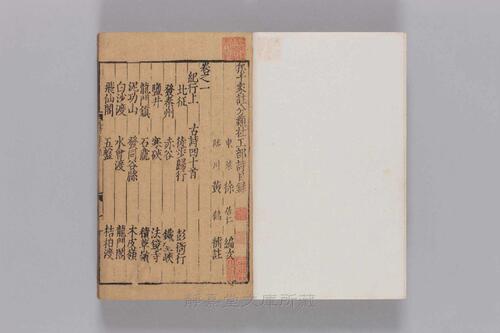 集千家註分類杜工部詩目錄
東萊 徐 居仁 編次
臨川 黃 鶴 補註
卷之一
紀行上 古詩四十首
北征 徒步歸行 彭衙行
發秦州 赤谷 鐵堂峽
鹽井 寒硤 法鏡寺
龍門鎮 石龕 積草嶺
泥功山 發同谷縣 木皮嶺
白沙渡 水會渡 龍門閣
飛仙閣 五盤 桔柏渡
静嘉堂文庫所蔵